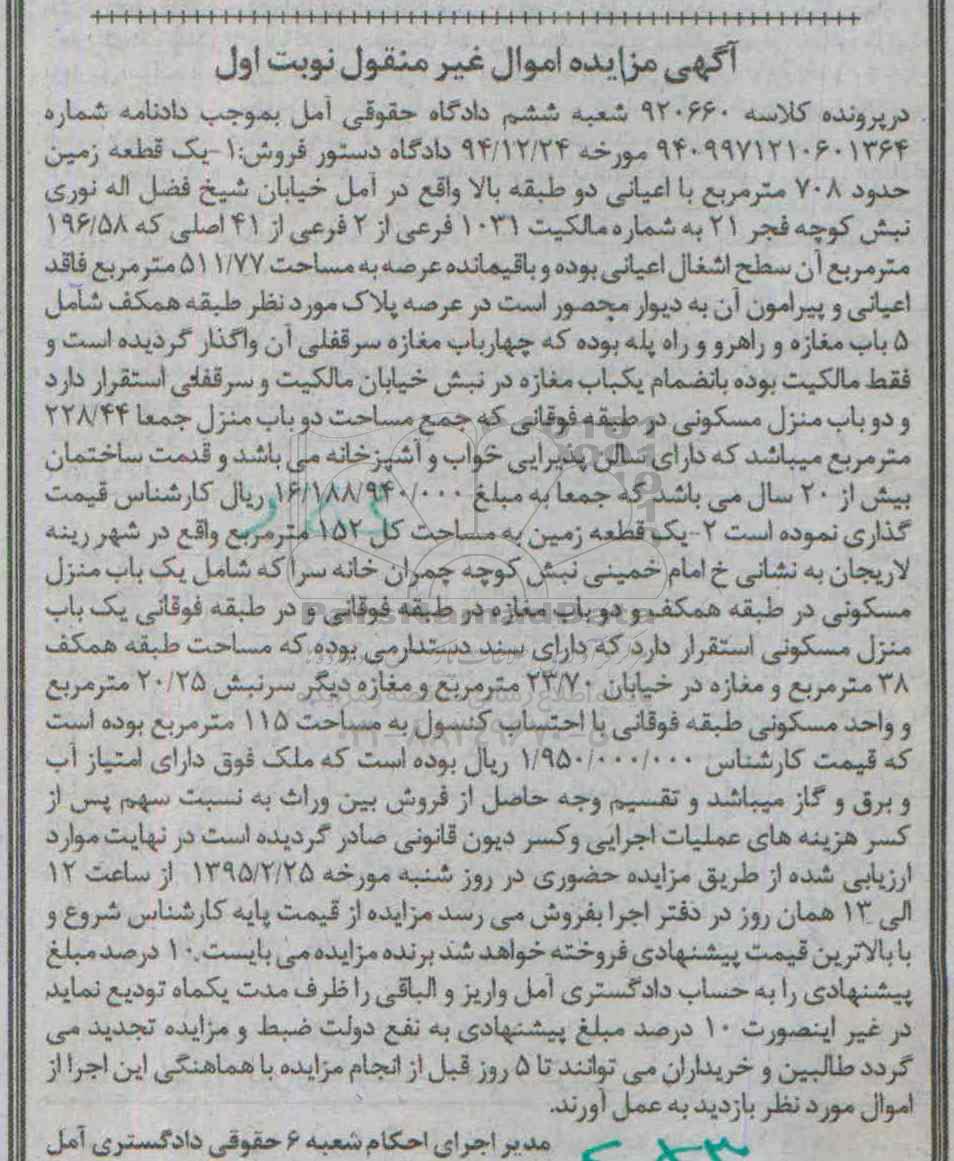 آگهی مزایده اموال غیر منقول نوبت اول
درپرونده کلاسه ۹۲۰۶۶۰ شعبه ششم دادگاه حقوقی آمل بموجب دادنامه شماره
۹۴۰۹۹۷۱۲۱۰۶۰۱۳۶۴ مورخه ۹۴/۱۲/۲۴ دادگاه دستور فروش:۱-یک قطعه زمین
حدود ۷۰۸ مترمربع با اعیانی دو طبقه بالا واقع در آمل خیابان شیخ فضل اله نوری
نبش کوچه فجر ۲۱ به شماره مالکیت ۱۰۳۱ فرعی از ۲ فرعی از ۴۱ اصلی که ۱۹۶/۵۸
مترمربع آن سطح اشغال اعیانی بوده و باقیمانده عرصه به مساحت ۵۱۱/۷۷ مترمربع فاقد
اعیانی و پیرامون آن به دیوار محصور است در عرصه پلاک مورد نظر طبقه همکف شامل
۵ باب مغازه و راهرو و راه پله بوده که چهارباب مغازه سرقفلی آن واگذار گردیده است و
فقط مالکیت بوده بانضمام یکباب مغازه در نبش خیابان مالکیت و سرقفلی استقرار دارد
و دو باب منزل مسکونی در طبقه فوقانی که جمع مساحت دو باب منزل جمعا ۲۲۸/۴۴
مترمربع میباشد که دارای سالن پذیرایی خواب و آشپزخانه می باشد و قدمت ساختمان
بیش از ۲۰ سال می باشد که جمعا به مبلغ ۱۶/۱۸۸/۹۴۰/۰۰۰ ریال کارشناس قیمت
گذاری نموده است ۲-یک قطعه زمین به مساحت کل ۱۵۲ مترمربع واقع در شهر رینه
لاریجان به نشانی خ امام خمینی نبش کوچه چمران خانه سرا که شامل یک باب منزل
مسکونی در طبقه همکف و دو باب مغازه در طبقه فوقانی و در طبقه فوقانی یک باب
منزل مسکونی استقرار دارد که دارای سند دستدارمی بوده که مساحت طبقه همکف
۳۸ مترمربع و مغازه در خیابان ۲۳/۷۰ مترمربع و مغازه دیگر سرنبش ۲۰/۲۵ مترمربع
و واحد مسکونی طبقه فوقانی با احتساب کنسول به مساحت ۱۱۵ مترمربع بوده است
که قیمت کارشناس ۱/۹۵۰/۰۰۰/۰۰۰ ریال بوده است که ملک فوق دارای امتیاز آب
و برق و گاز میباشد و تقسیم وجه حاصل از فروش بین وراث به نسبت سهم پس از
کسر هزینه های عملیات اجرایی وکسر دیون قانونی صادر گردیده است در نهایت موارد
ارزیابی شده از طریق مزایده حضوری در روز شنبه مورخه ۱۳۹۵/۲/۲۵ از ساعت ۱۲
الی ۱۳ همان روز در دفتر اجرا بفروش می رسد مزایده از قیمت پایه کارشناس شروع و
با بالاترین قیمت پیشنهادی فروخته خواهد شد برنده مزایده می بایست ۱۰ درصد مبلغ
پیشنهادی را به حساب دادگستری آمل واریز و الباقی را ظرف مدت یکماه تودیع نماید
در غیر اینصورت ۱۰ درصد مبلغ پیشنهادی به نفع دولت ضبط و مزایده تجدید می
گردد طالبین و خریداران می توانند تا ۵ روز قبل از انجام مزایده با هماهنگی این اجرا از
اموال مورد نظر بازدید به عمل آورند.
مدیر اجرای احکام شعبه ۶ حقوقی دادگستری آمل
ParsNamadData